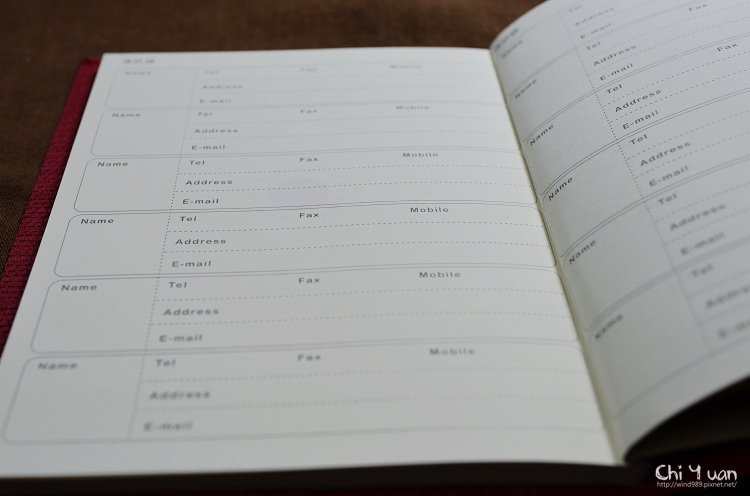 Name Tel Fax Mobile
Address
E-mail
Name Tel Fax Mobile
Address
E-mail
Name Tel Fax Mobile
Address
E-mail
Name Tel Fax Mobile
Address
E-mail
Name Tel Fax Mobile
Address
E-mail
Name Tel Fax Mobile
Address
E-mail
Address
Name E-mail
Tel
Address
E-mail
Name Tel Fax
Address
E-mail
Name Tel
Address
E-mail
Name Tel
Address
E-mail
Name Tel
Address
E-mail
Name Tel
Address
E-mail
Chi Yuan
http://wind989.pixnet.net/